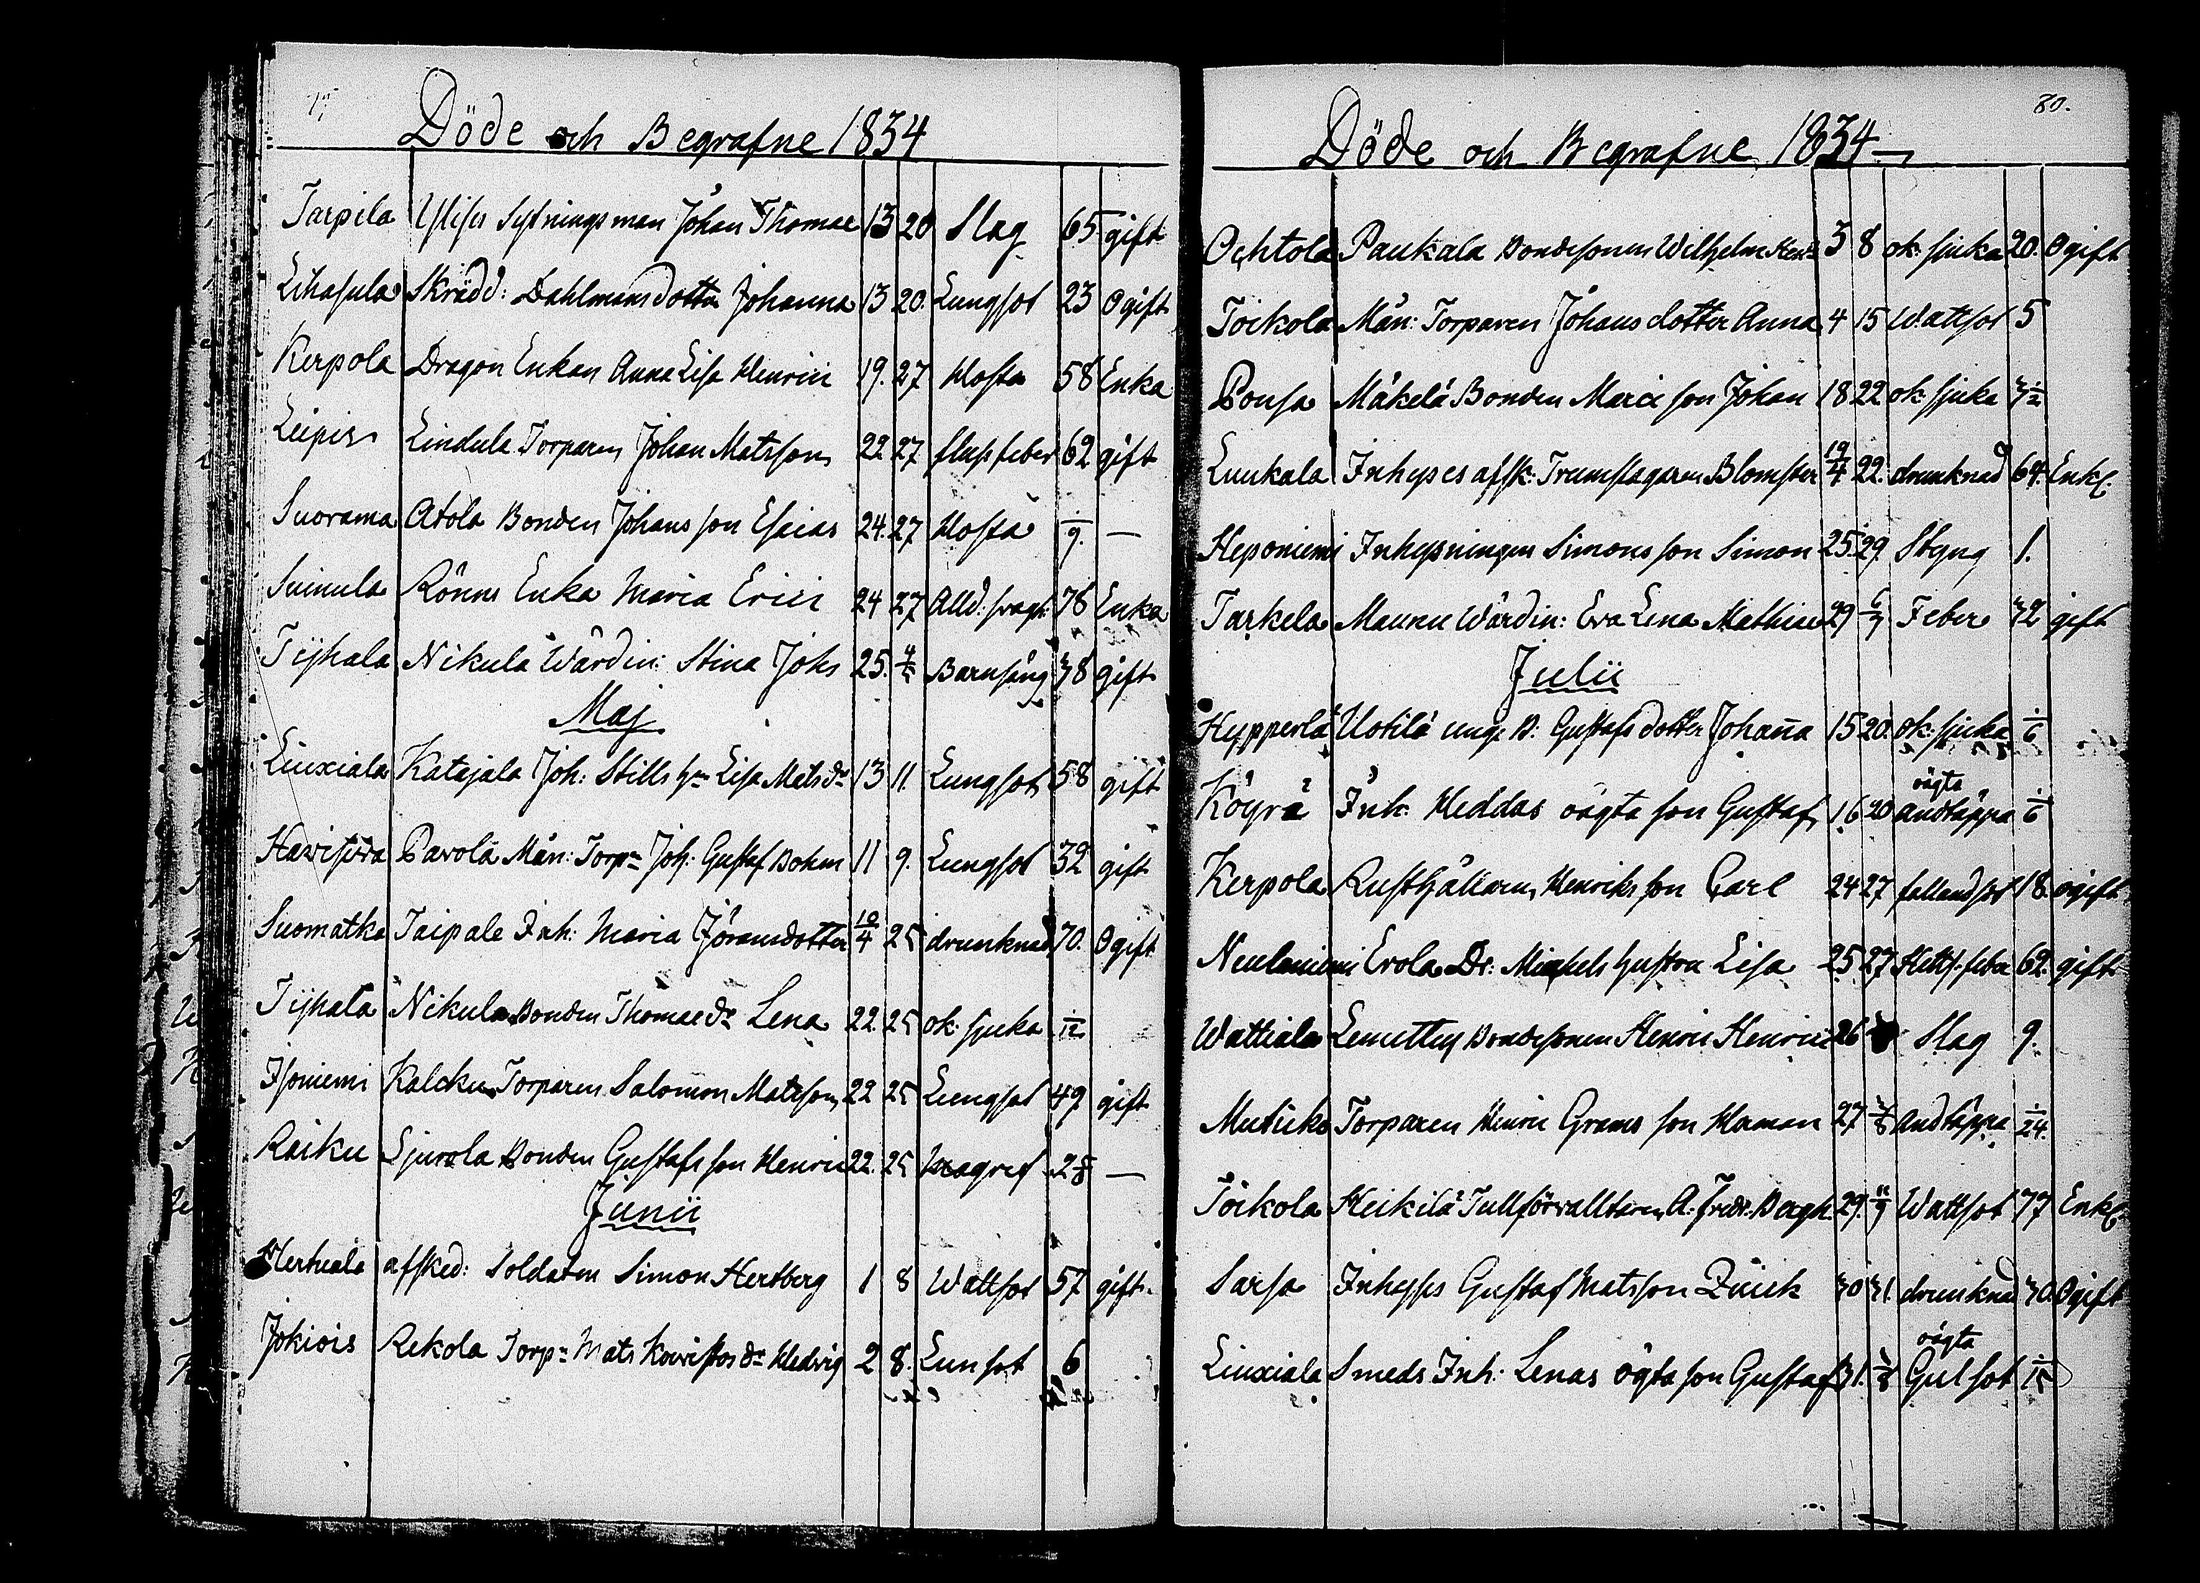 Döde och Begrafne 1834
Tarpila Ylisis Sytningsman Johan Thomae 13 20 Slag 65 gift
Lihasula Skrädd: Dahlmans dotter Johanna 13 20. Lungsot 23 Ogift
Kerpola Dragon Enkan Anna Lisa Henrici 19. 27 Hosta 58 Enka
Leipis Lindula Torparen Johan Matsson 22 27 fluss feber 62 gift
Suorama Atola Bonden Johans son Esaias 24. 27 Hosta 1/9. —
Suinula Rönns Enka Maria Erici 24 27 Ålld: svagh: 78 Enka
Tijhala Nikula Wärdin: Stina Johs 25. 4/5 Barnsäng 38 gift
Maj
Liuxiala Katajala Joh: Stills hu Lisa Mats dr 13 11. Lungsot 58 gift
Pavola Mån: Torpn Joh: Gustaf Bohm 11 9. Lungsot 32 gift
Suomatka Taipale Inh: Maria Jöransdotter 19/4 25 drunknad 70. Ogift
Tijhala Nikula Bonden Thomae dr Lena 22. 25 ok: sjuka 1/12
Isoniemi Kalcku Torparen Salomon Matsson 22 25 Lungsot 49 gift
Raiku Sjurola Bonden Gustafs son Henric 22. 25 Magref 2 —
Junii
Hertuala afsked: Soldaten Simon Hertberg 1 8 Wattsot 57 gift.
Jokiois Rekola Torpn Mats Kovistos dr Hedvig 2 8. Lunsot 6
80.
Döde och Begrafne 1834
Ochtola Paukala Bondesonen Wilhelm 3 8 ok: sjuka 20. Ogift
Toikola Mån: Torparen Johans dotter Anna 4 15 Wattsot 5
Ponsa Mäkelä Bonden Marci son Johan 18 22 ok: sjuka 3/12
Luukala Inhyses afsk: Trumslagaren Blomster 19/4 22. drunknad 64. Enkl.
Heponiemi Inhysningen Simons son Simon 25. 29. Styng 1.
Tarkela Maunu Wärdin: Eva Lena Mathiae 29 6/7 Feber 32 gift
Julii
Hypperlä Uotilä unge B: Gustafs dotter Johanna 15 20. ok: sjuka 1/6
Köyrä Inh: Heddas oägta son Gustaf 16 20 oägta andtäppa 1/6
Kerpola Rusthållaren Henriks son Carl 24 27 fallandsot 18. ogift
Neulaniemi Erola Dr: Michels hustru Lisa 25 27 Hetts: feber 62. gift
Wattiala Lemetty Bondesonen Henric Henrici 26 Slag 9.
Mutikko Torparen Henric Grams son Herman 27 3/8 Andtäppa 1/24.
Toikola Heikilä Tullförvalltaren A: Fredr: Bergh 29. Wattsot 77 Enkl.
Sarsa Inhyses Gustaf Matsson Quick 30 31. drunknad 30. Ogift
Liuxiala Smeds Inh: Lenas ögta son Gustaf 31. 3/8 oägta Gulsot